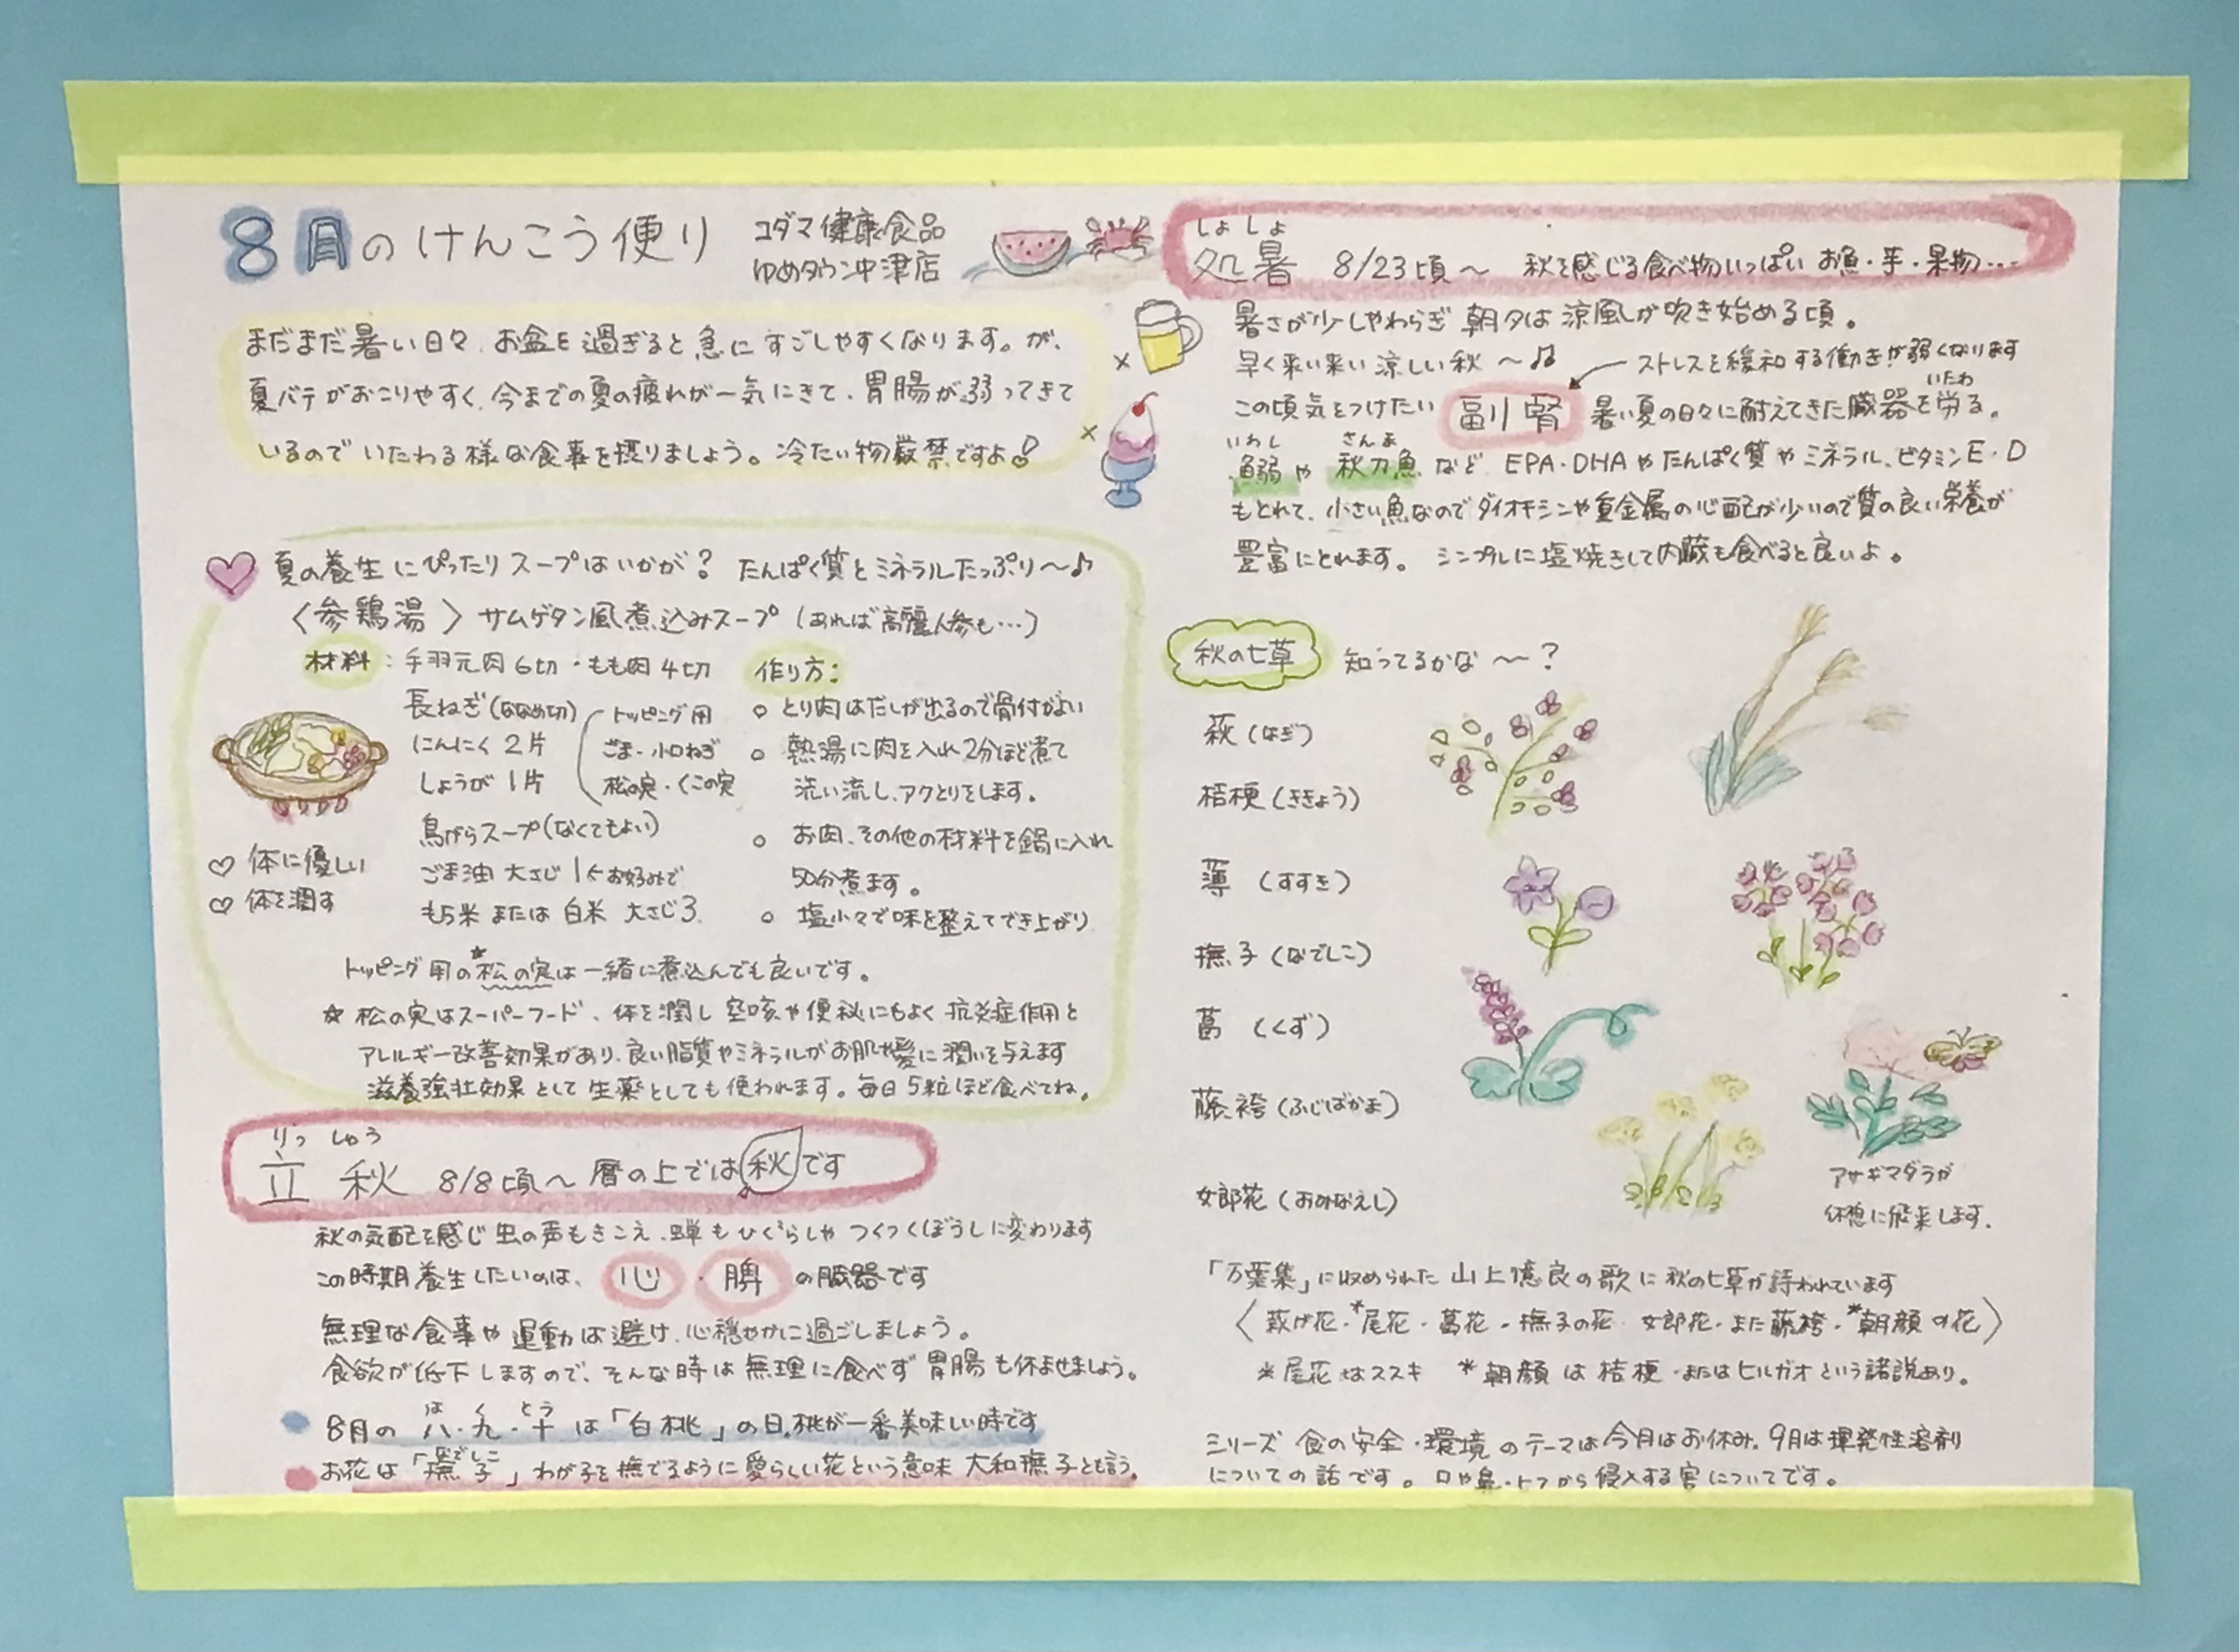 8月のけんこう便り
コダマ健康食品
ゆめタウン中津店
まだまだ暑い日々、お盆を過ぎると急にすごしやすくなります。が、
夏バテがおこりやすく、今までの夏の疲れが一気にきて、胃腸が弱ってきて
いるのでいたわる様な食事を摂りましょう。冷たい物厳禁ですよ!
夏の養生にぴったりスープはいかが? たんぱく質とミネラルたっぷり〜♪
〈参鶏湯〉サムゲタン風煮込みスープ(あれば高麗人参も…)
材料:手羽元肉6切・もも肉4切
長ねぎ(ななめ切)
にんにく2片
しょうが1片
トッピング用
ごま・小口ねぎ
松の実・くこの実
鳥がらスープ(なくてもよい)
ごま油 大さじ1くお好みで
もち米または白米 大さじ3
♡体に優しい
♡体を潤す
作り方:
○とり肉はだしが出るので骨付がよい
○熱湯に肉を入れ2分ほど煮て
洗い流し、アクとりをします。
○お肉、その他の材料を鍋に入れ
50分煮ます。
○塩少々で味を整えてでき上がり
トッピング用の★松の実は一緒に煮込んでも良いです。
☆松の実はスーパーフード、体を潤し空咳や便秘にもよく抗炎症作用と
アレルギー改善効果があり、良い脂質やミネラルがお肌や髪に潤いを与えます
滋養強壮効果として生薬としても使われます。毎日5粒ほど食べてね。
りっしゅう
立秋 8/8頃〜 暦の上では秋です
秋の気配を感じ虫の声もきこえ、蝉もひぐらしやつくつくぼうしに変わります
この時期養生したいのは、心・脾の臓器です
無理な食事や運動は避け、心穏やかに過ごしましょう。
食欲が低下しますので、そんな時は無理に食べず胃腸も休ませましょう。
は く とう
8月の八・九・十は「白桃」の日、桃が一番美味しい時です
なでしこ
お花は「撫子」わが子を撫でるように愛らしい花という意味 大和撫子とも言う。
しょしょ
処暑 8/23頃〜 秋を感じる食べ物いっぱい お魚・芋・果物…
暑さが少しやわらぎ朝夕は涼風が吹き始める頃。
早く来い来い涼しい秋〜♫
ストレスを緩和する働きが弱くなります
いたわ
この頃気をつけたい 副腎 暑い夏の日々に耐えてきた臓器を労る。
いわし さんま
鰯や秋刀魚など EPA・DHAやたんぱく質やミネラル、ビタミンE・D
もとれて、小さい魚なのでダイオキシンや重金属の心配が少いので質の良い栄養が
豊富にとれます。 シンプルに塩焼きして内臓も食べると良いよ。
秋の七草 知ってるかな〜?
萩(はぎ)
桔梗(ききょう)
薄(すすき)
撫子(なでしこ)
葛(くず)
藤袴(ふじばかま)
女郎花(おみなえし)
アサギマダラが
休憩に飛来します.
「万葉集」に収められた山上憶良の歌に秋の七草が詩われています
〈萩が花・*尾花・葛花・撫子の花 女郎花・また藤袴・*朝顔の花〉
*尾花はススキ *朝顔は桔梗・またはヒルガオという諸説あり。
シリーズ 食の安全・環境のテーマは今月はお休み。9月は揮発性溶剤
についての話です。口や鼻・ヒフから侵入する害についてです。